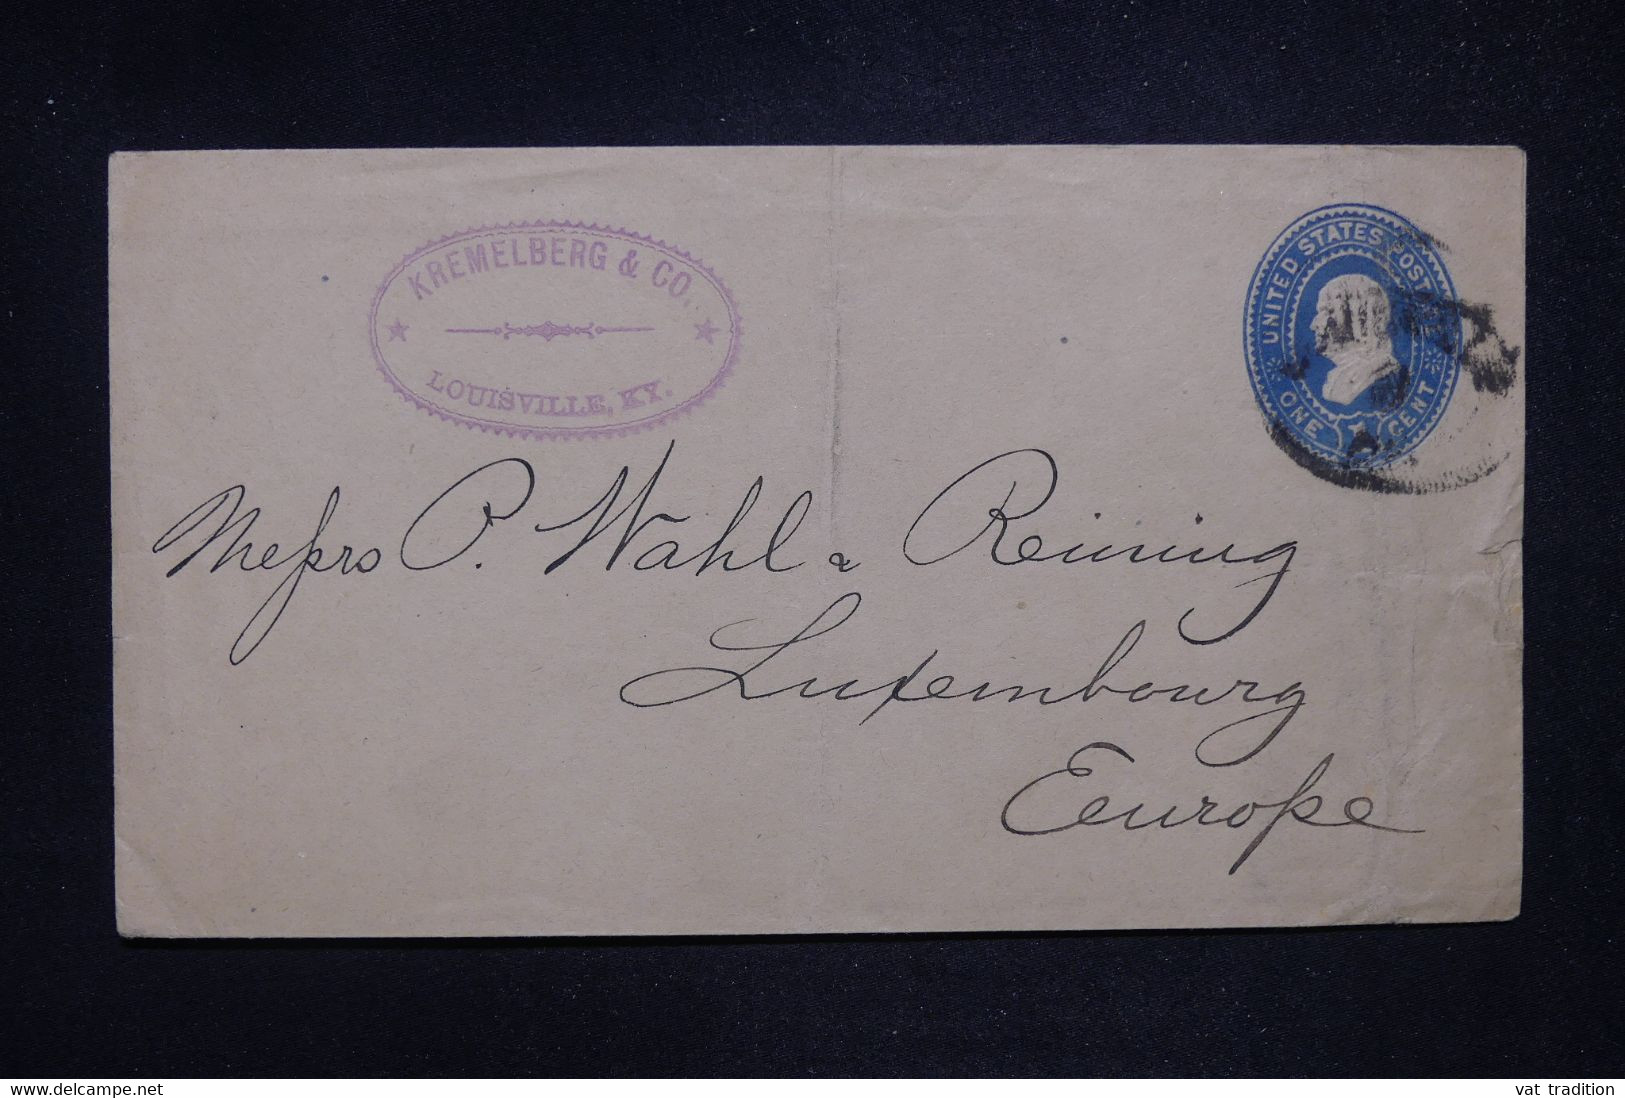 KREMELBERG & CO.
LOUISVILLE, KY.
UNITED STATES POSTAGE
ONE CENT
Messrs P. Wahl & Reining
Luxembourg
Europe
delcampe.net
vat tradition